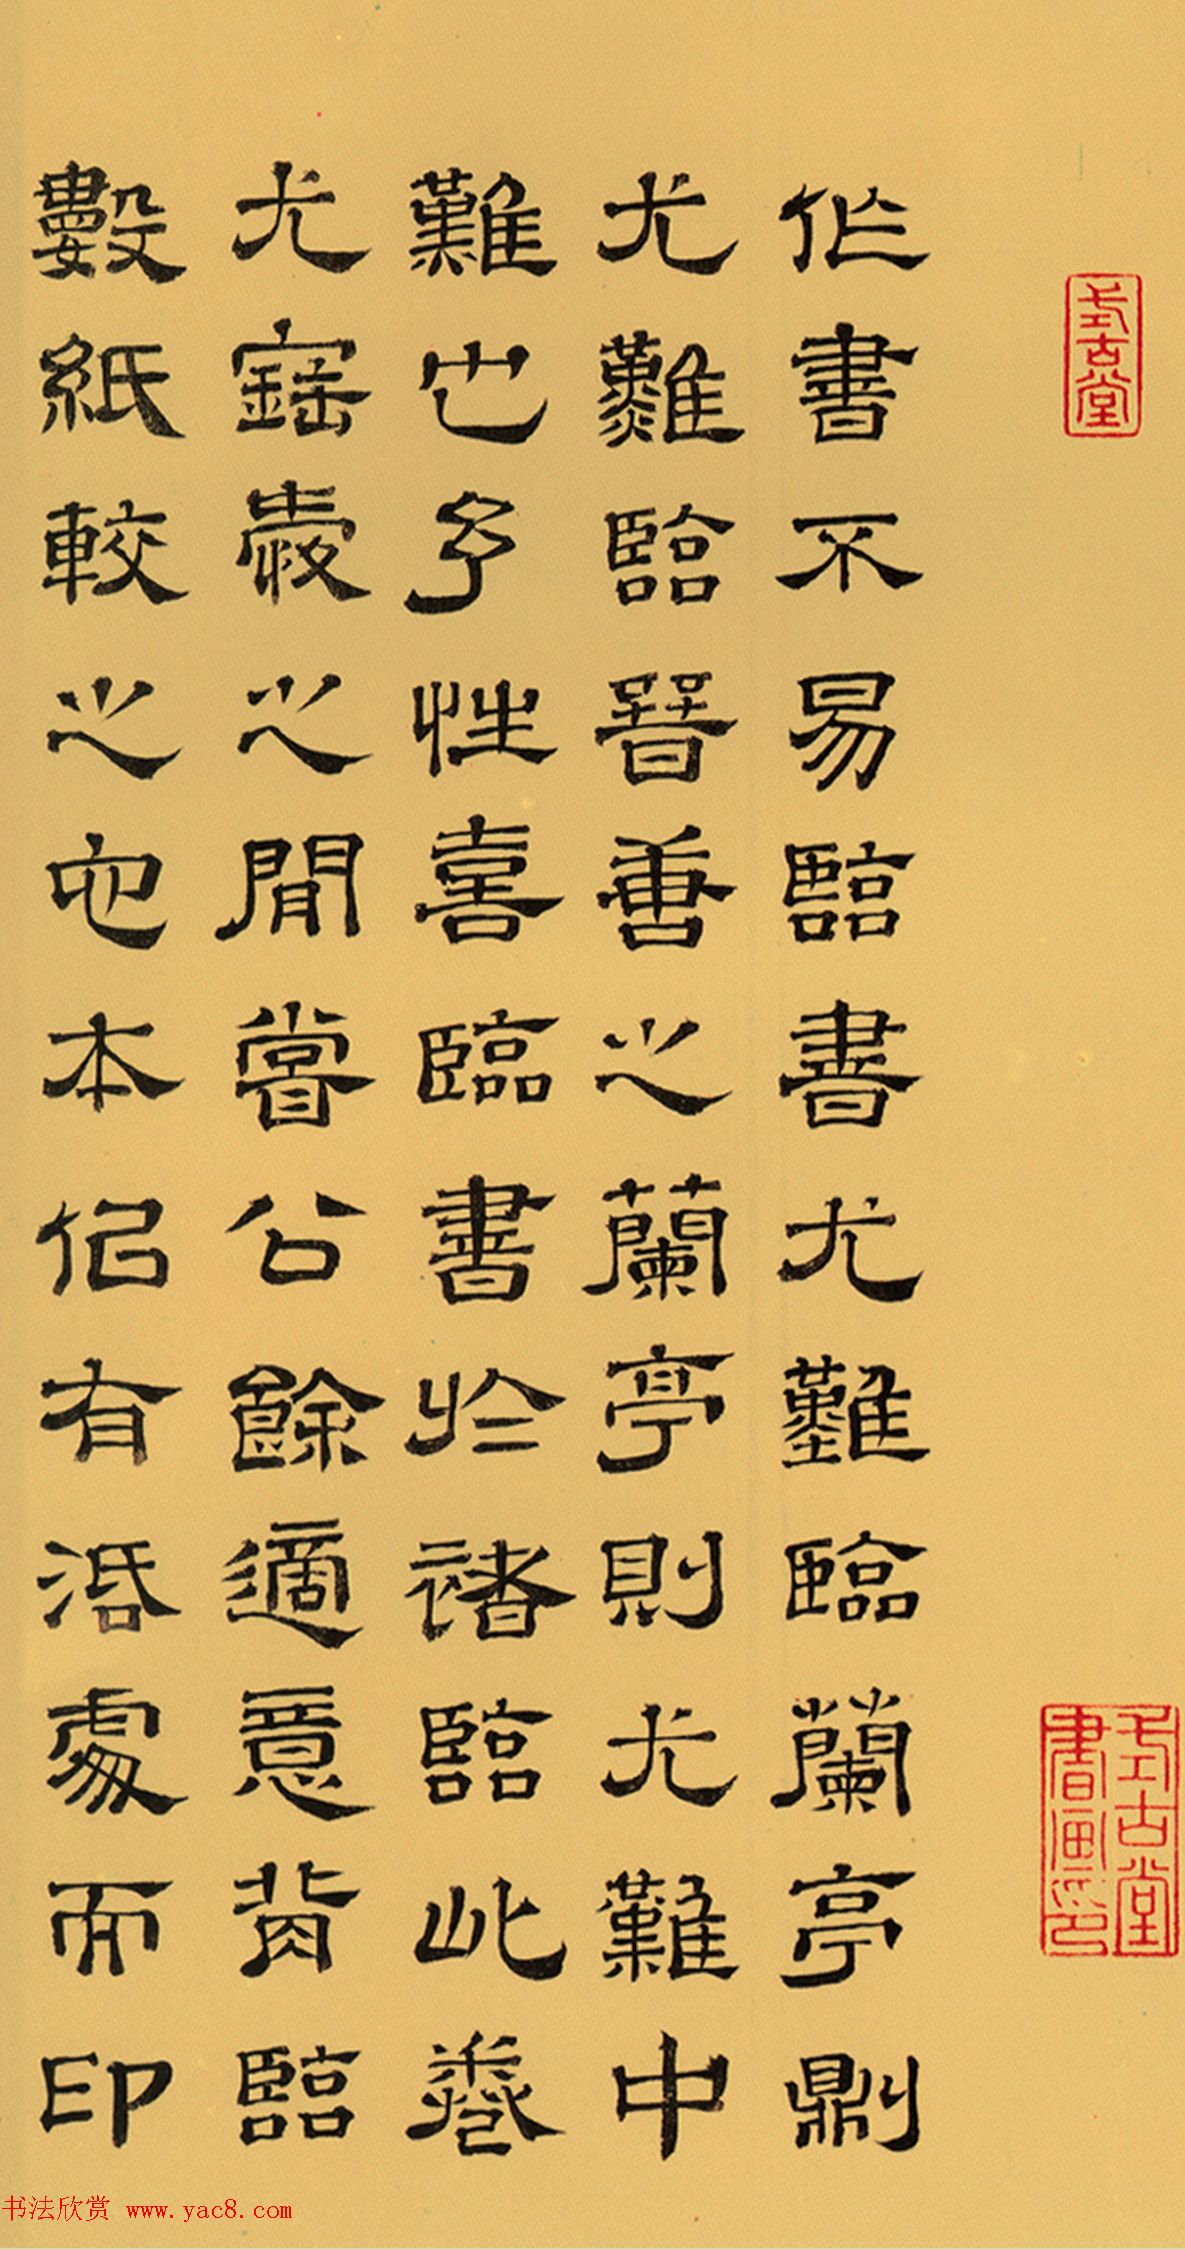 式古堂
式古堂
書畫印
作書不易臨書尤難臨蘭亭則
尤難臨晉善之蘭亭則尤難中
難也予性喜臨書於褚臨此卷
尤寶愛之閒嘗公餘適意背臨
數紙較之它本佀有活處而印
书法欣赏 www.yac8.com